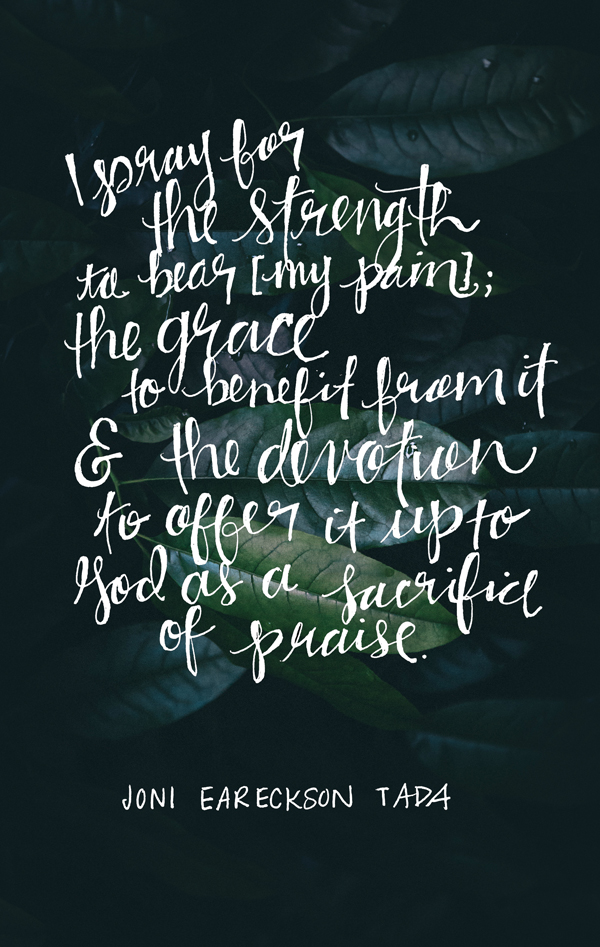 I pray for
the strength
to bear [my pain];
the grace
to benefit from it
& the devotion
to offer it up to
God as a sacrifice
of praise.
JONI EARECKSON TADA